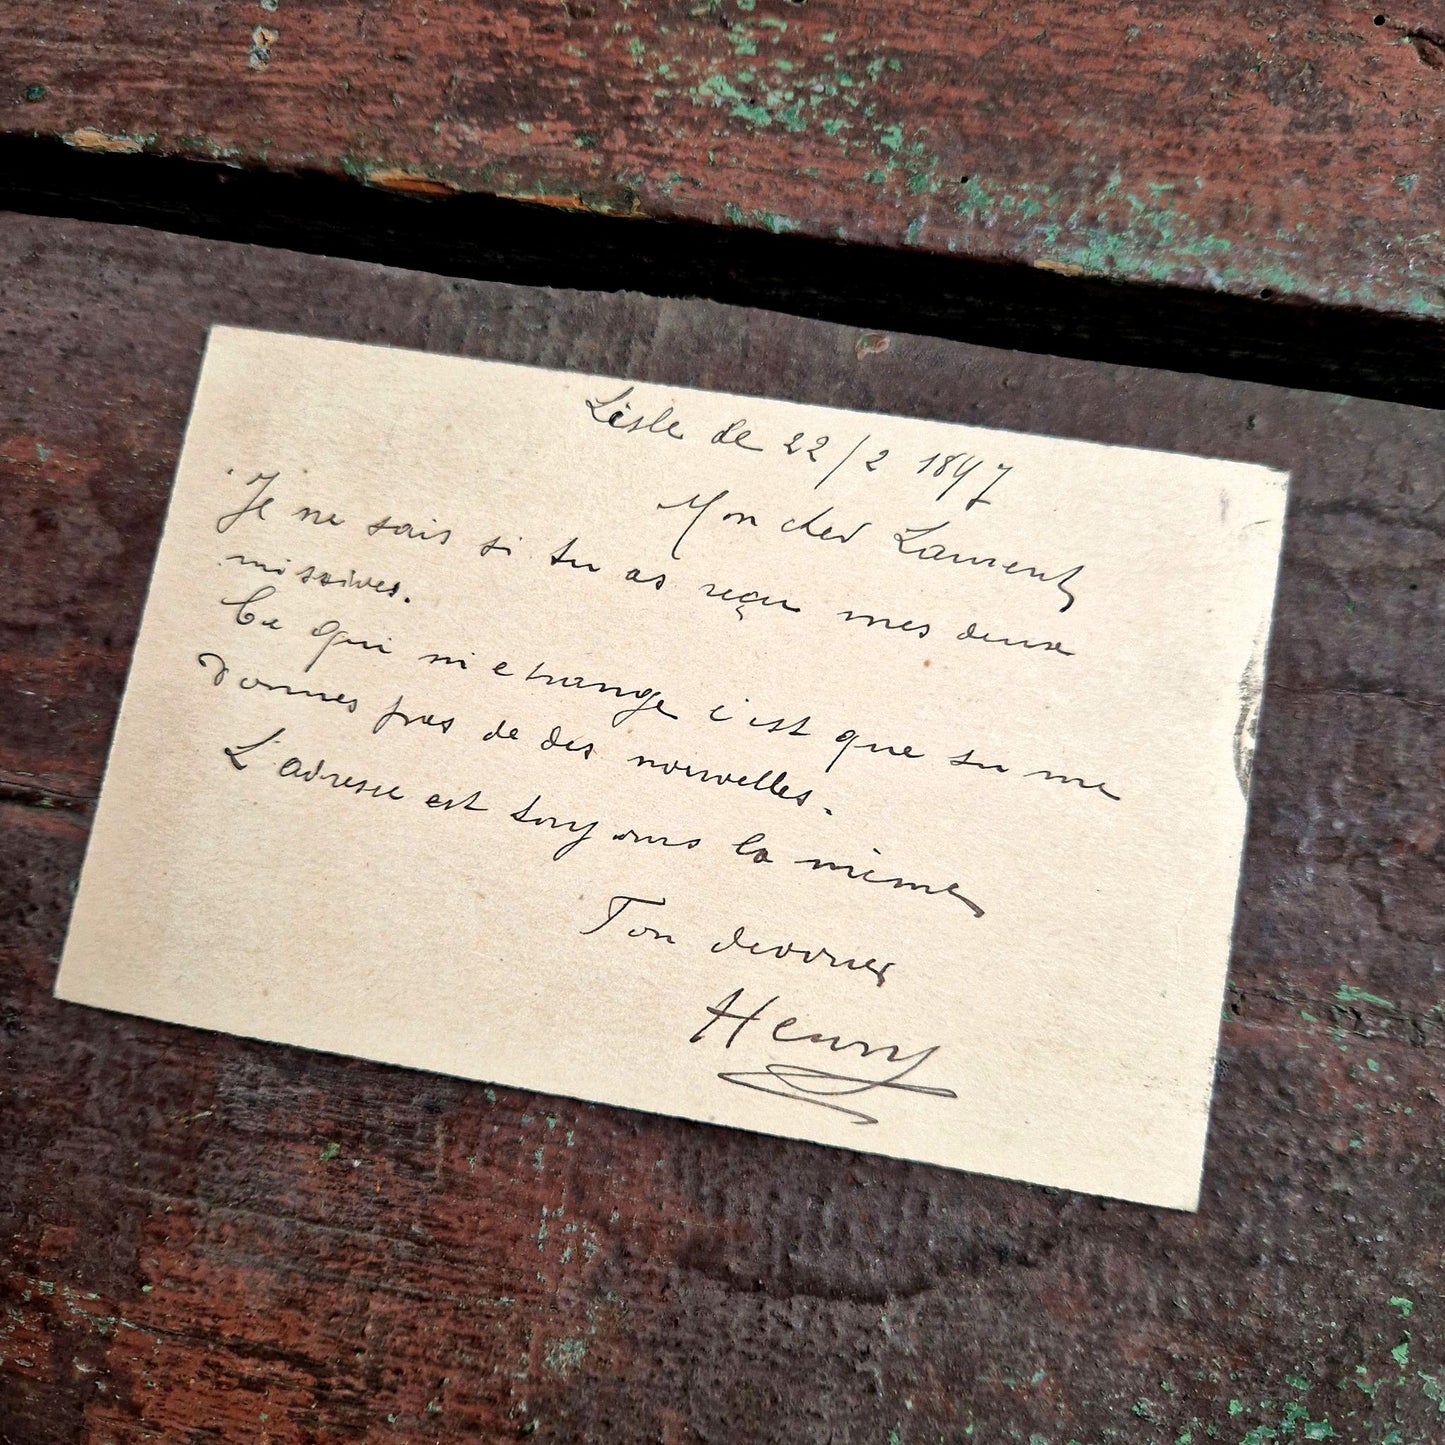 Lisle de 22/2 1897
Mon cher Laurent
Je ne sais si tu as reçu mes deux
missives.
Ce qui m'etrange c'est que tu me
donnes pas de des nouvelles.
L'adresse est toujours la même
Ton devoué
Henry